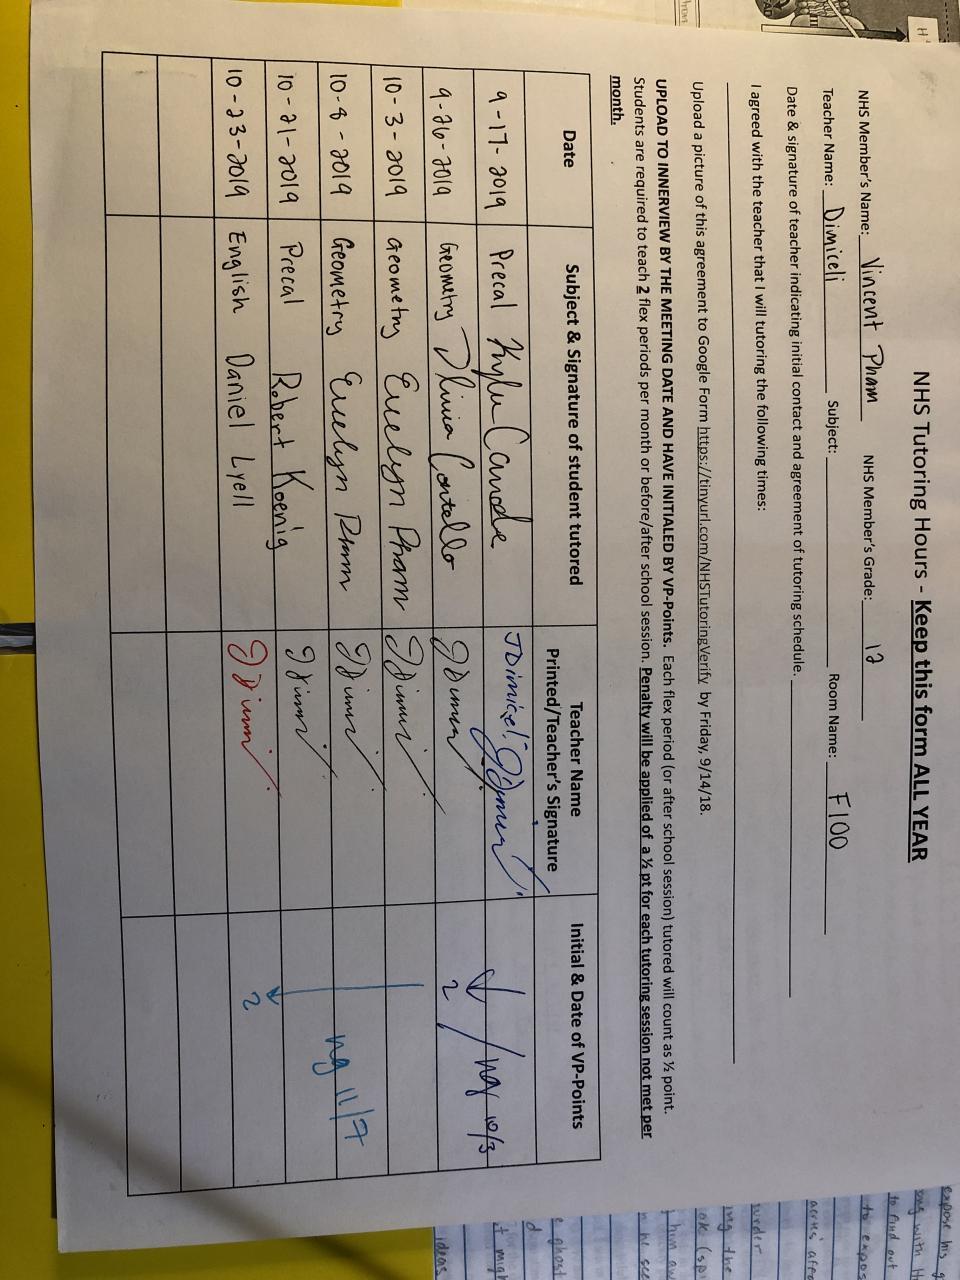 NHS Tutoring Hours - Keep this form ALL YEAR
NHS Member's Name: Vincent Pham NHS Member's Grade: 12
Teacher Name: Dimiceli Subject: Room Name: F100
Date & signature of teacher indicating initial contact and agreement of tutoring schedule.
I agreed with the teacher that I will tutoring the following times:
Upload a picture of this agreement to Google Form https://tinyurl.com/NHSTutoringVerify by Friday, 9/14/18.
UPLOAD TO INNERVIEW BY THE MEETING DATE AND HAVE INITIALED BY VP-Points. Each flex period (or after school session) tutored will count as ½ point.
Students are required to teach 2 flex periods per month or before/after school session. Penalty will be applied of a ½ pt for each tutoring session not met per
month.
Date Subject & Signature of student tutored Teacher Name Printed/Teacher's Signature Initial & Date of VP-Points
9-17-2019 Precal JDimiceli
9-26-2019 Geometry 2 / ng 10/3
10-3-2019 Geometry Evelyn Pham
10-8-2019 Geometry Evelyn Pham ng 11/7
10-21-2019 Precal Robert Koenig
10-23-2019 English Daniel Lyell 2
expose his
to find out
to expos
e ghost
ideas